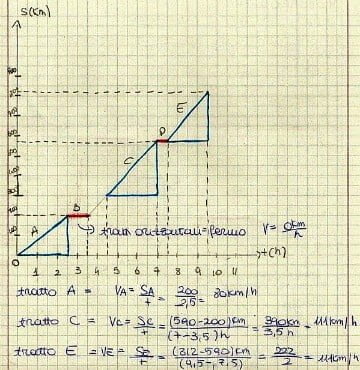 S(km)
D
E
C
B
A
tratti orizzontali=fermo V= 0km/h
0 1 2 3 4 5 6 7 8 9 10 11 t(h)
tratto A = VA = SA/t = 200/2,5 = 80km/h
tratto C = VC = SC/t = (590-200)km/(7-3,5)h = 390km/3,5h = 111km/h
tratto E = VE = SE/t = (812-590)km/(9,5-7,5) = 222/2 = 111km/h